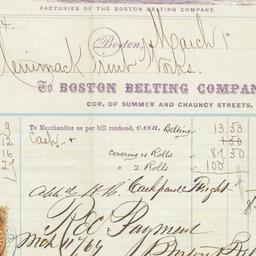 FACTORIES OF THE BOSTON BELTING COMPANY.
4. Boston, March 1
Merrimack Print Works.
To BOSTON BELTING COMPAN
COR. OF SUMMER AND CHAUNCY STREETS.
9 To Merchandise as per bill rendered, CASH, Belting 13.53
12 Cash
16 Covering 2 Rolls 87 50
27 " 2 Rolls 100
Cash paid Freight
Rec Payment
Mch 11/64 Boston B